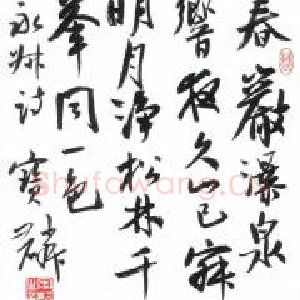 春巖瀑泉
響夜久山已寂
明月淨松林千
峯同一色
永叔诗 寶麟
Shufawang.cn